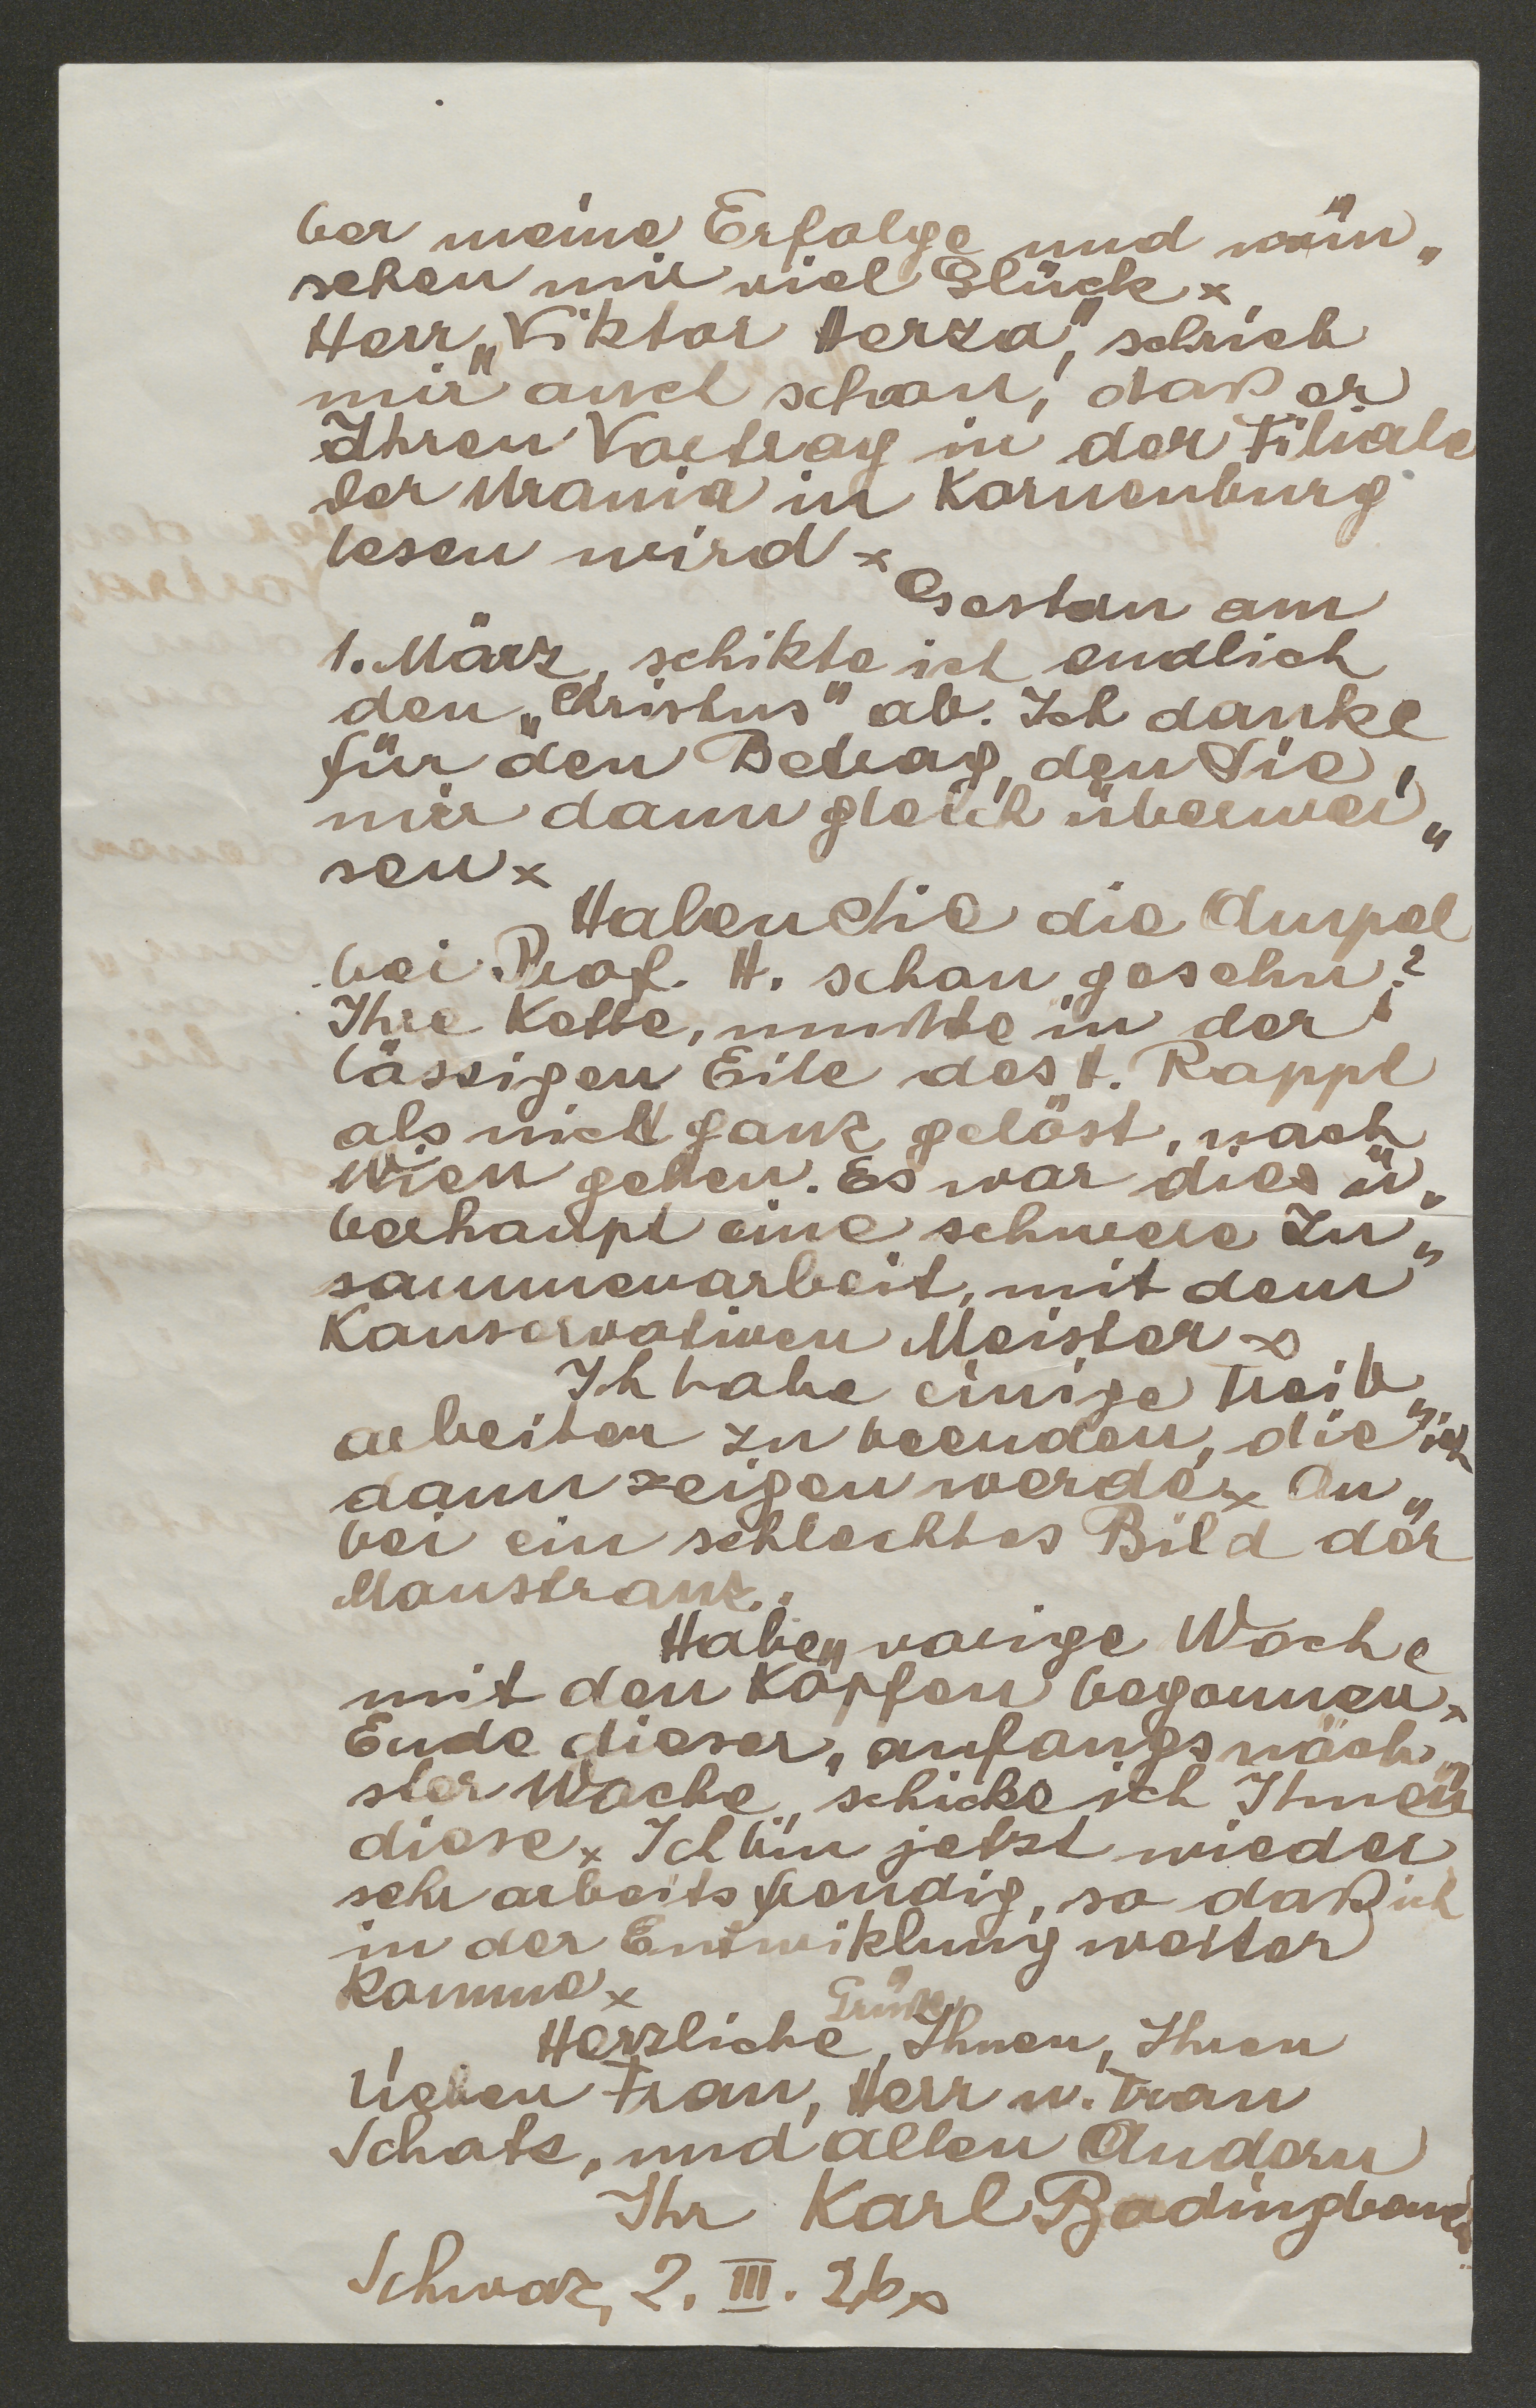 ber meine Erfolge und wün„
schen mir viel Glück ×
Herr „Viktor Herza“, schrieb
mir auch schon, daß er
Ihren Vortrag in der Filiale
der Urania in Korneuburg
lesen wird ×
Gestern am
1. März, schikte ich endlich
den „Christus“ ab. Ich danke
für den Betrag, den Sie,
mir dann gleich überwei„
sen ×
Haben Sie die Ampel
bei Prof. H. schon gesehn?
Ihre Kette, mußte in der
lässigen Eile des H. Rappl
als nicht ganz gelöst, nach
Wien gehen. Es war dies ü„
berhaupt eine schwere Zu„
sammenarbeit, mit dem
Konservativen Meister ×
Ich habe einige Treib„
arbeiten zu beenden, die ich
dann zeigen werde × An„
bei ein schlechtes Bild der
Monstranz.
Habe vorige Woche
mit den Köpfen begonnen ×
Ende dieser, anfangs näch„
ster Woche, schicke ich Ihnen
diese × Ich bin jetzt wieder
sehr arbeitsfreudig, so daß ich
in der Entwiklung weiter
komme ×
Herzliche Grüße, Ihnen, Ihrer
lieben Frau, Herr u. Frau
Schatz, und allen Andern
Ihr Karl Badingbauer
Schwaz, 2. III. 26 ×